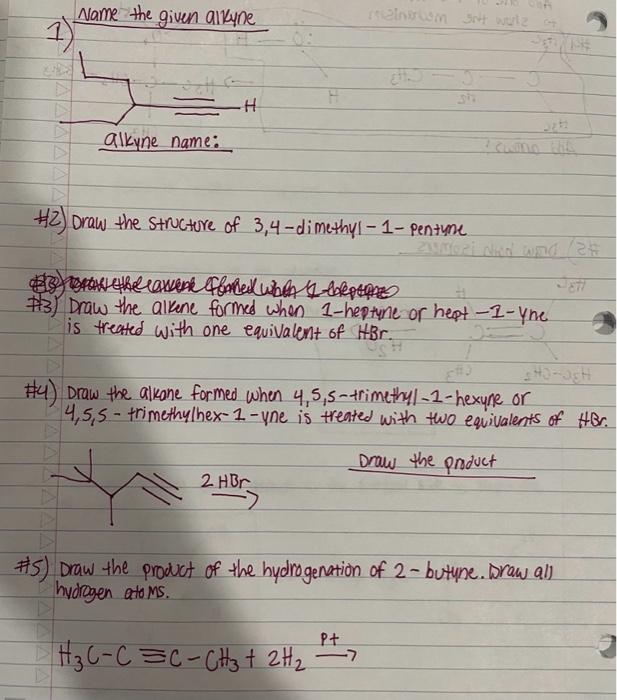 Name the given alkyne
1)
H
alkyne name:
#2) Draw the structure of 3,4-dimethyl-1-pentyne
#3) Draw the alkene formed when 1-heptyne or hept-1-yne
is treated with one equivalent of HBr.
#4) Draw the alkane formed when 4,5,5-trimethyl-1-hexyne or
4,5,5-trimethylhex-1-yne is treated with two equivalents of HBr.
Draw the product
2 HBr
#5) Draw the product of the hydrogenation of 2-butyne. Draw all
hydrogen atoms.
H3C-C≡C-CH3 + 2H2 Pt →